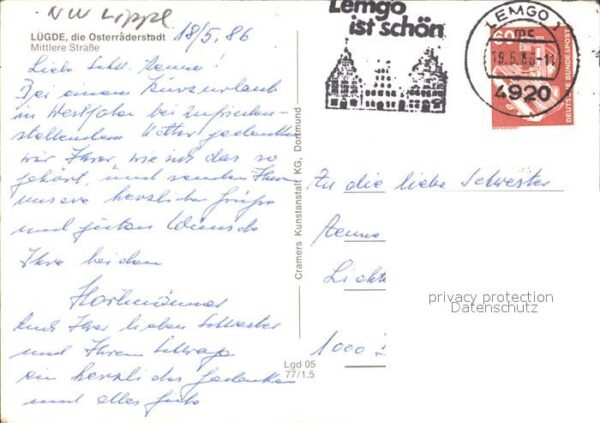 NW Lippe
LÜGDE, die Osterräderstadt
Mittlere Straße
18/5.86
Liebe Schw. Aenne!
Bei einem Kurzurlaub
in Westfalen bei zufrieden-
stellendem Wetter gedenken
wir Ihrer, wie sich das so
gehört, und senden Ihnen
unsere herzlichen Grüße
und guten Wünsche
Ihre beiden
und Ihrer lieben Schwester
und Ihrem Schwager
ein herzliches Gedenken
und alles Gute
Cramers Kunstanstalt KG, Dortmund
Lgd 05
77/1,5
Lemgo
ist schön
LEMGO 1
19.5.86-11
4920
60
DEUTSCHE BUNDESPOST
An die liebe Schwester
Aenne
Licht
1000
privacy protection
Datenschutz